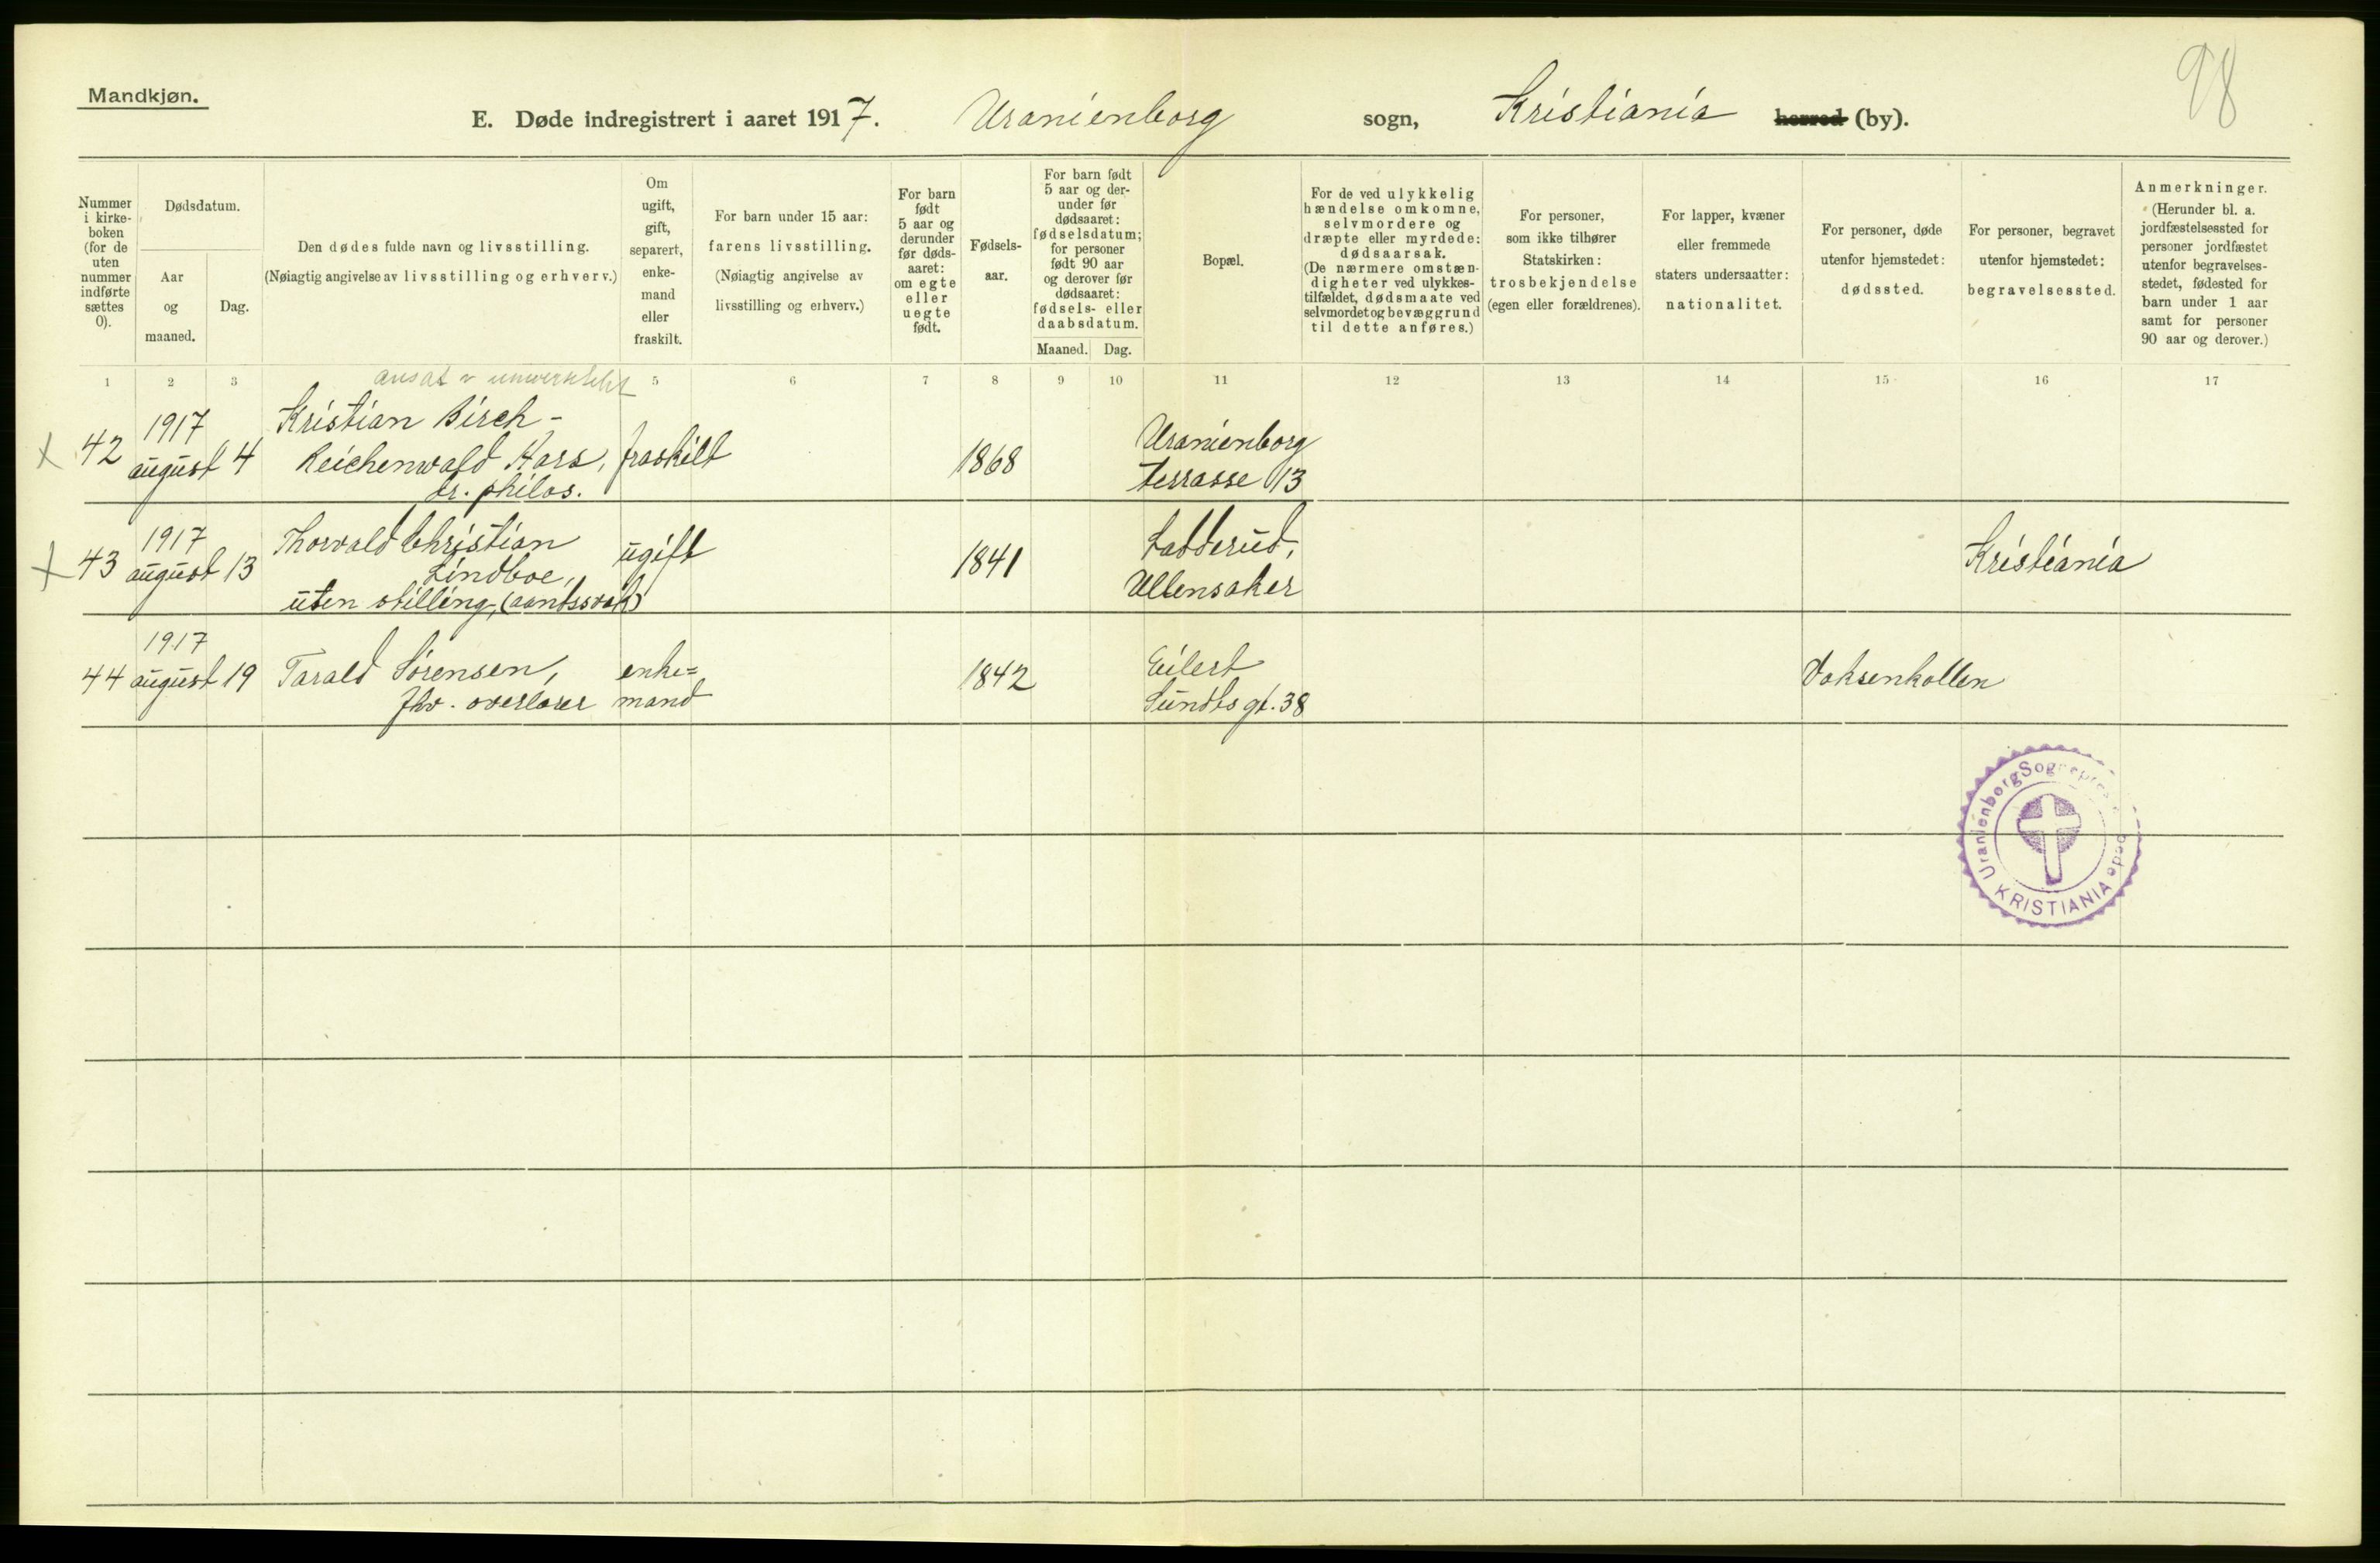 98
Mandkjøn.
E. Døde indregistrert i aaret 1917. Uranienborg sogn, Kristiania herred (by).
Nummer i kirke- boken (for de uten nummer indførte sættes 0).
Dødsdatum.
Aar og maaned.
Dag.
Den dødes fulde navn og livsstilling.
(Nøiagtig angivelse av livsstilling og erhverv.)
Om ugift, gift, separert, enke- mand eller fraskilt.
For barn under 15 aar:
farens livsstilling.
(Nøiagtig angivelse av
livsstilling og erhverv.)
For barn født 5 aar og derunder før døds- aaret: om egte eller uegte født.
Fødsels- aar.
For barn født 5 aar og der- under før dødsaaret: fødselsdatum; for personer født 90 aar og derover før dødsaaret: fødsels- eller daabsdatum.
Maaned. Dag.
Bopæl.
For de ved ulykkelig hændelse omkomne, selvmordere og dræpte eller myrdede: dødsaarsak. (De nærmere omstæn- digheter ved ulykkes- tilfældet, dødsmaate ved selvmordet og bevæggrund til dette anføres.)
For personer, som ikke tilhører Statskirken: trosbekjendelse (egen eller forældrenes).
For lapper, kvæner eller fremmede staters undersaatter: nationalitet.
For personer, døde utenfor hjemstedet: dødssted.
For personer, begravet utenfor hjemstedet: begravelsessted.
Anmerkninger.
(Herunder bl. a. jordfæstelsessted for personer jordfæstet utenfor begravelses- stedet, fødested for barn under 1 aar samt for personer 90 aar og derover.)
1 2 3 5 6 7 8 9 10 11 12 13 14 15 16 17
ansat v
1917 Kristian Birch-
42 august 4 Reichenwald Aars, fraskilt 1868 Uranienborg
dr. philos. terrasse 13
1917 Thorvald Christian
43 august 13 Lindboe, ugift 1841 Ladderud,
uten stilling, Ullensaker Kristiania
1917
44 august 19 Tarald Sørensen, enke= 1842 Eilert Voksenkollen
fhv. overlærer mand Sundts gt. 38
Uranienborg
KRISTIANIA